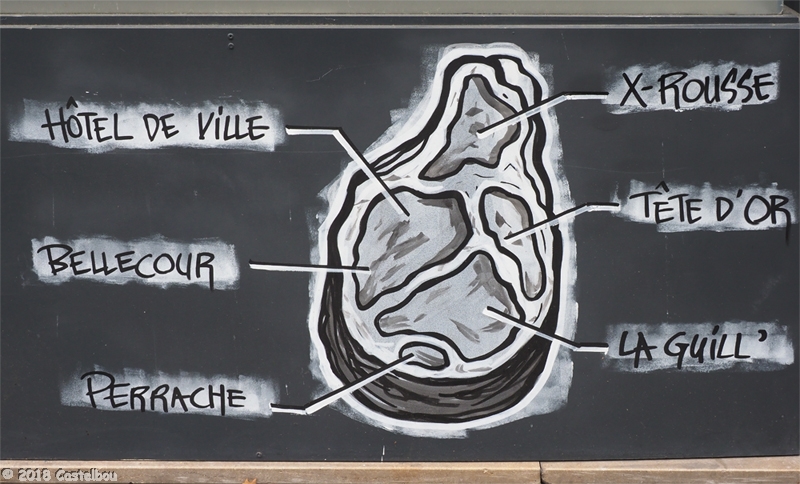 X-ROUSSE
HÔTEL DE VILLE
TÊTE D'OR
BELLECOUR
LA GUILL'
PERRACHE
© 2018 Castelbou